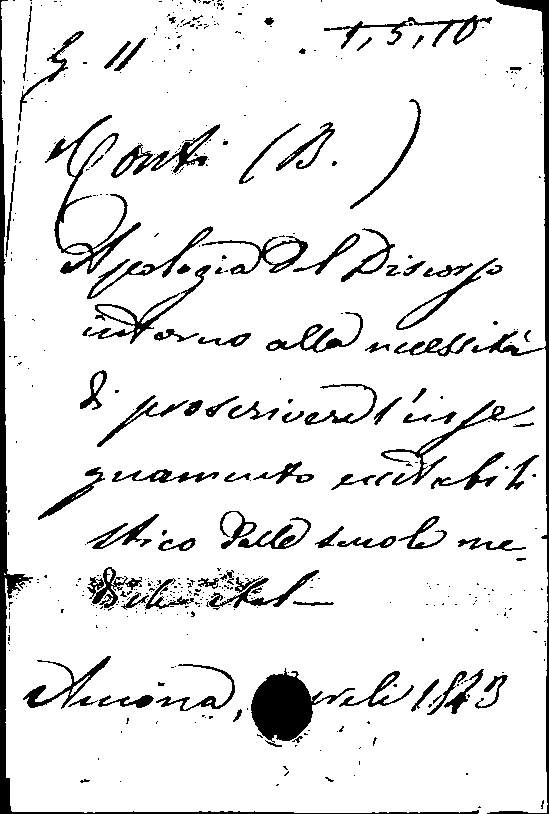 G. 11
1, 5, 10
Conti (B.)
Apologia del Discorso
intorno alla necessità
di proscrivere l'inse-
gnamento eccitabili
stico dalle scuole me-
diche
Ancona, 1843